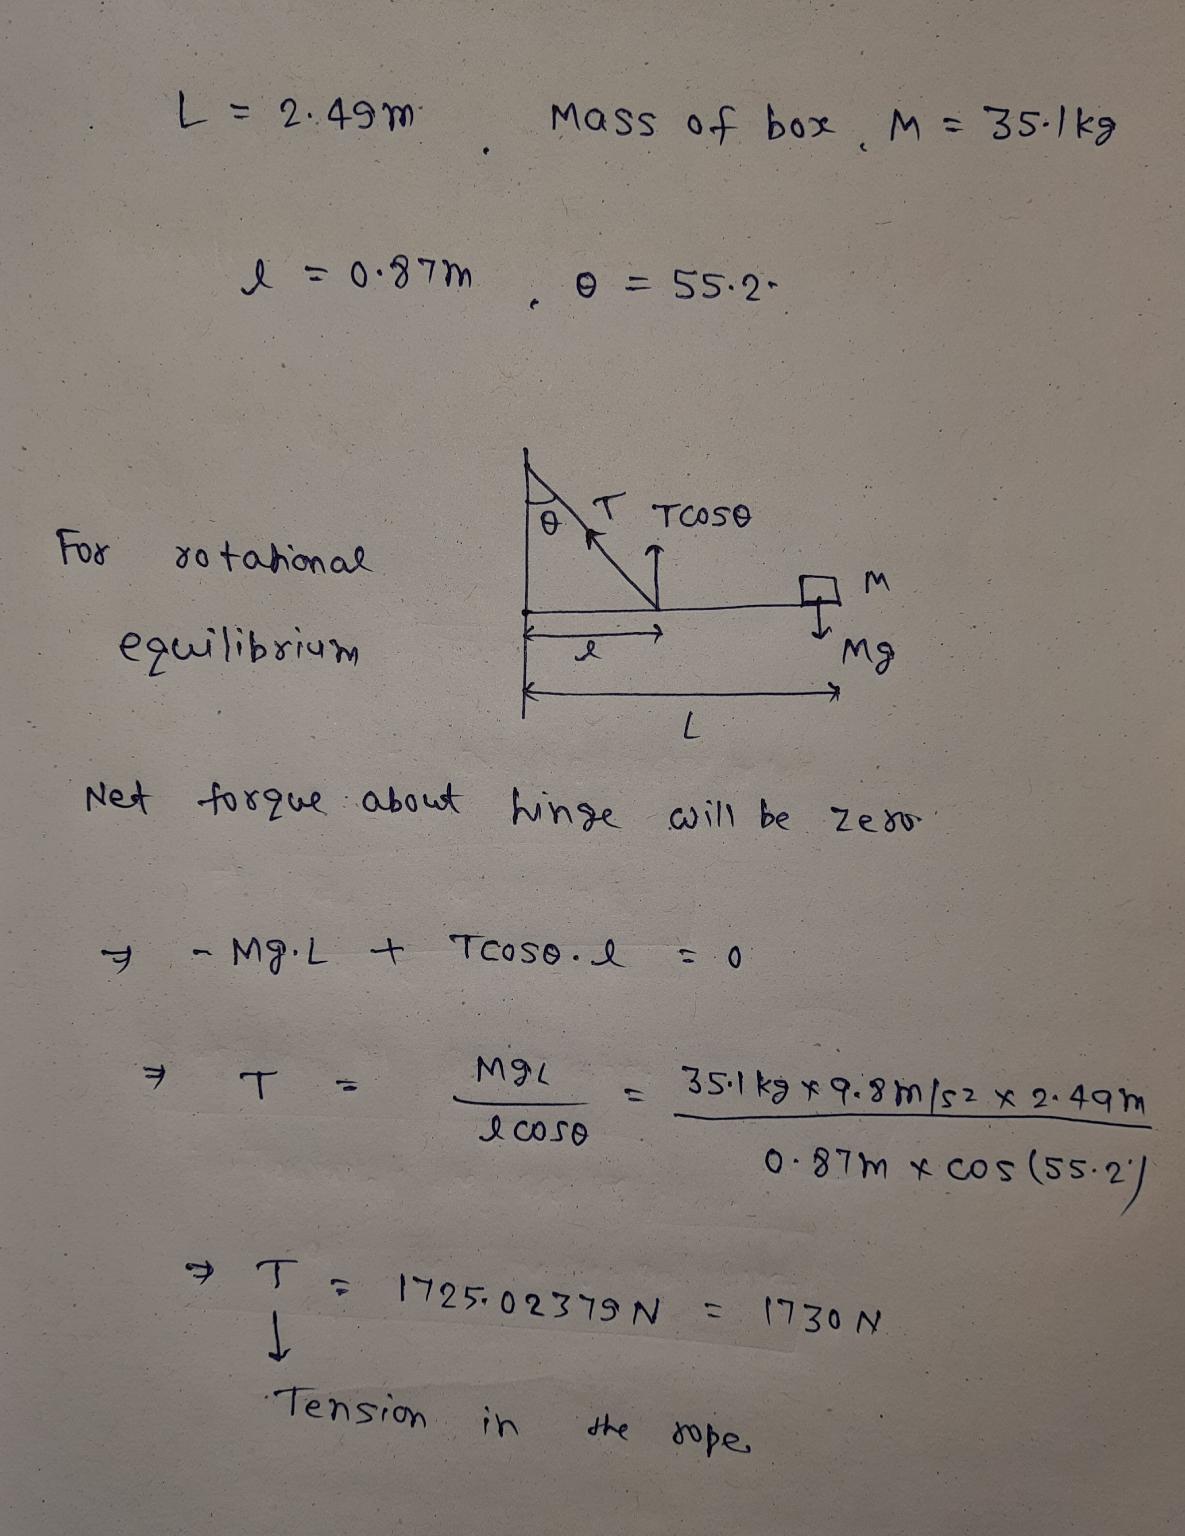 L = 2.49m. Mass of box, M = 35.1kg
l = 0.87m, θ = 55.2°
θ T Tcosθ
For rotational
M
equilibrium
l Mg
L
Net torque about hinge will be zero.
⇒ - Mg.L + Tcosθ.l = 0
⇒ T = MgL / lcosθ = 35.1kg x 9.8m/s2 x 2.49m / 0.87m x cos(55.2°)
⇒ T = 1725.02379N = 1730N
↓
Tension in the rope.